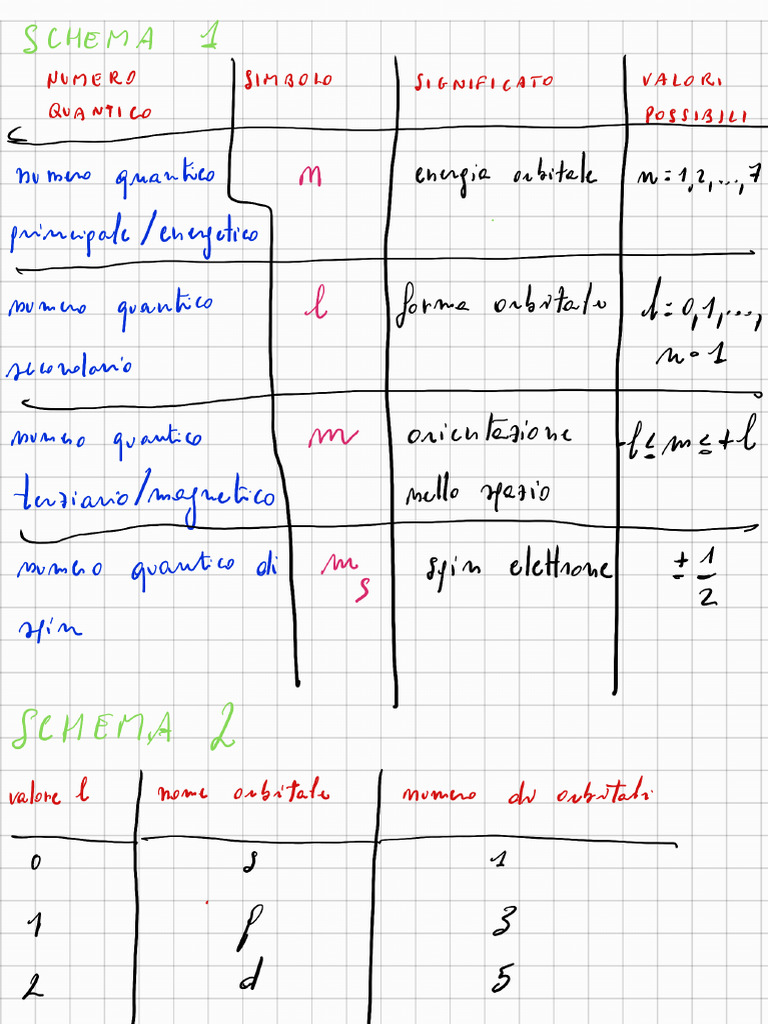 SCHEMA 1
NUMERO SIMBOLO SIGNIFICATO VALORI
QUANTICO POSSIBILI
numero quantico n energia orbitale n=1,2,...,7
principale/energetico
numero quantico l forma orbitale l=0,1,...,
secondario n-1
numero quantico m orientazione -l≤m≤+l
terziario/magnetico nello spazio
numero quantico di ms spin elettrone ±1/2
spin
SCHEMA 2
valore l nome orbitale numero di orbitali
0 s 1
1 p 3
2 d 5